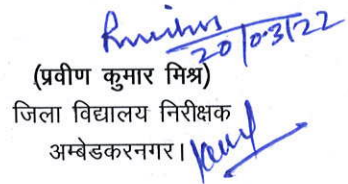 20/03/22
(प्रवीण कुमार मिश्र)
जिला विद्यालय निरीक्षक
अम्बेडकरनगर।